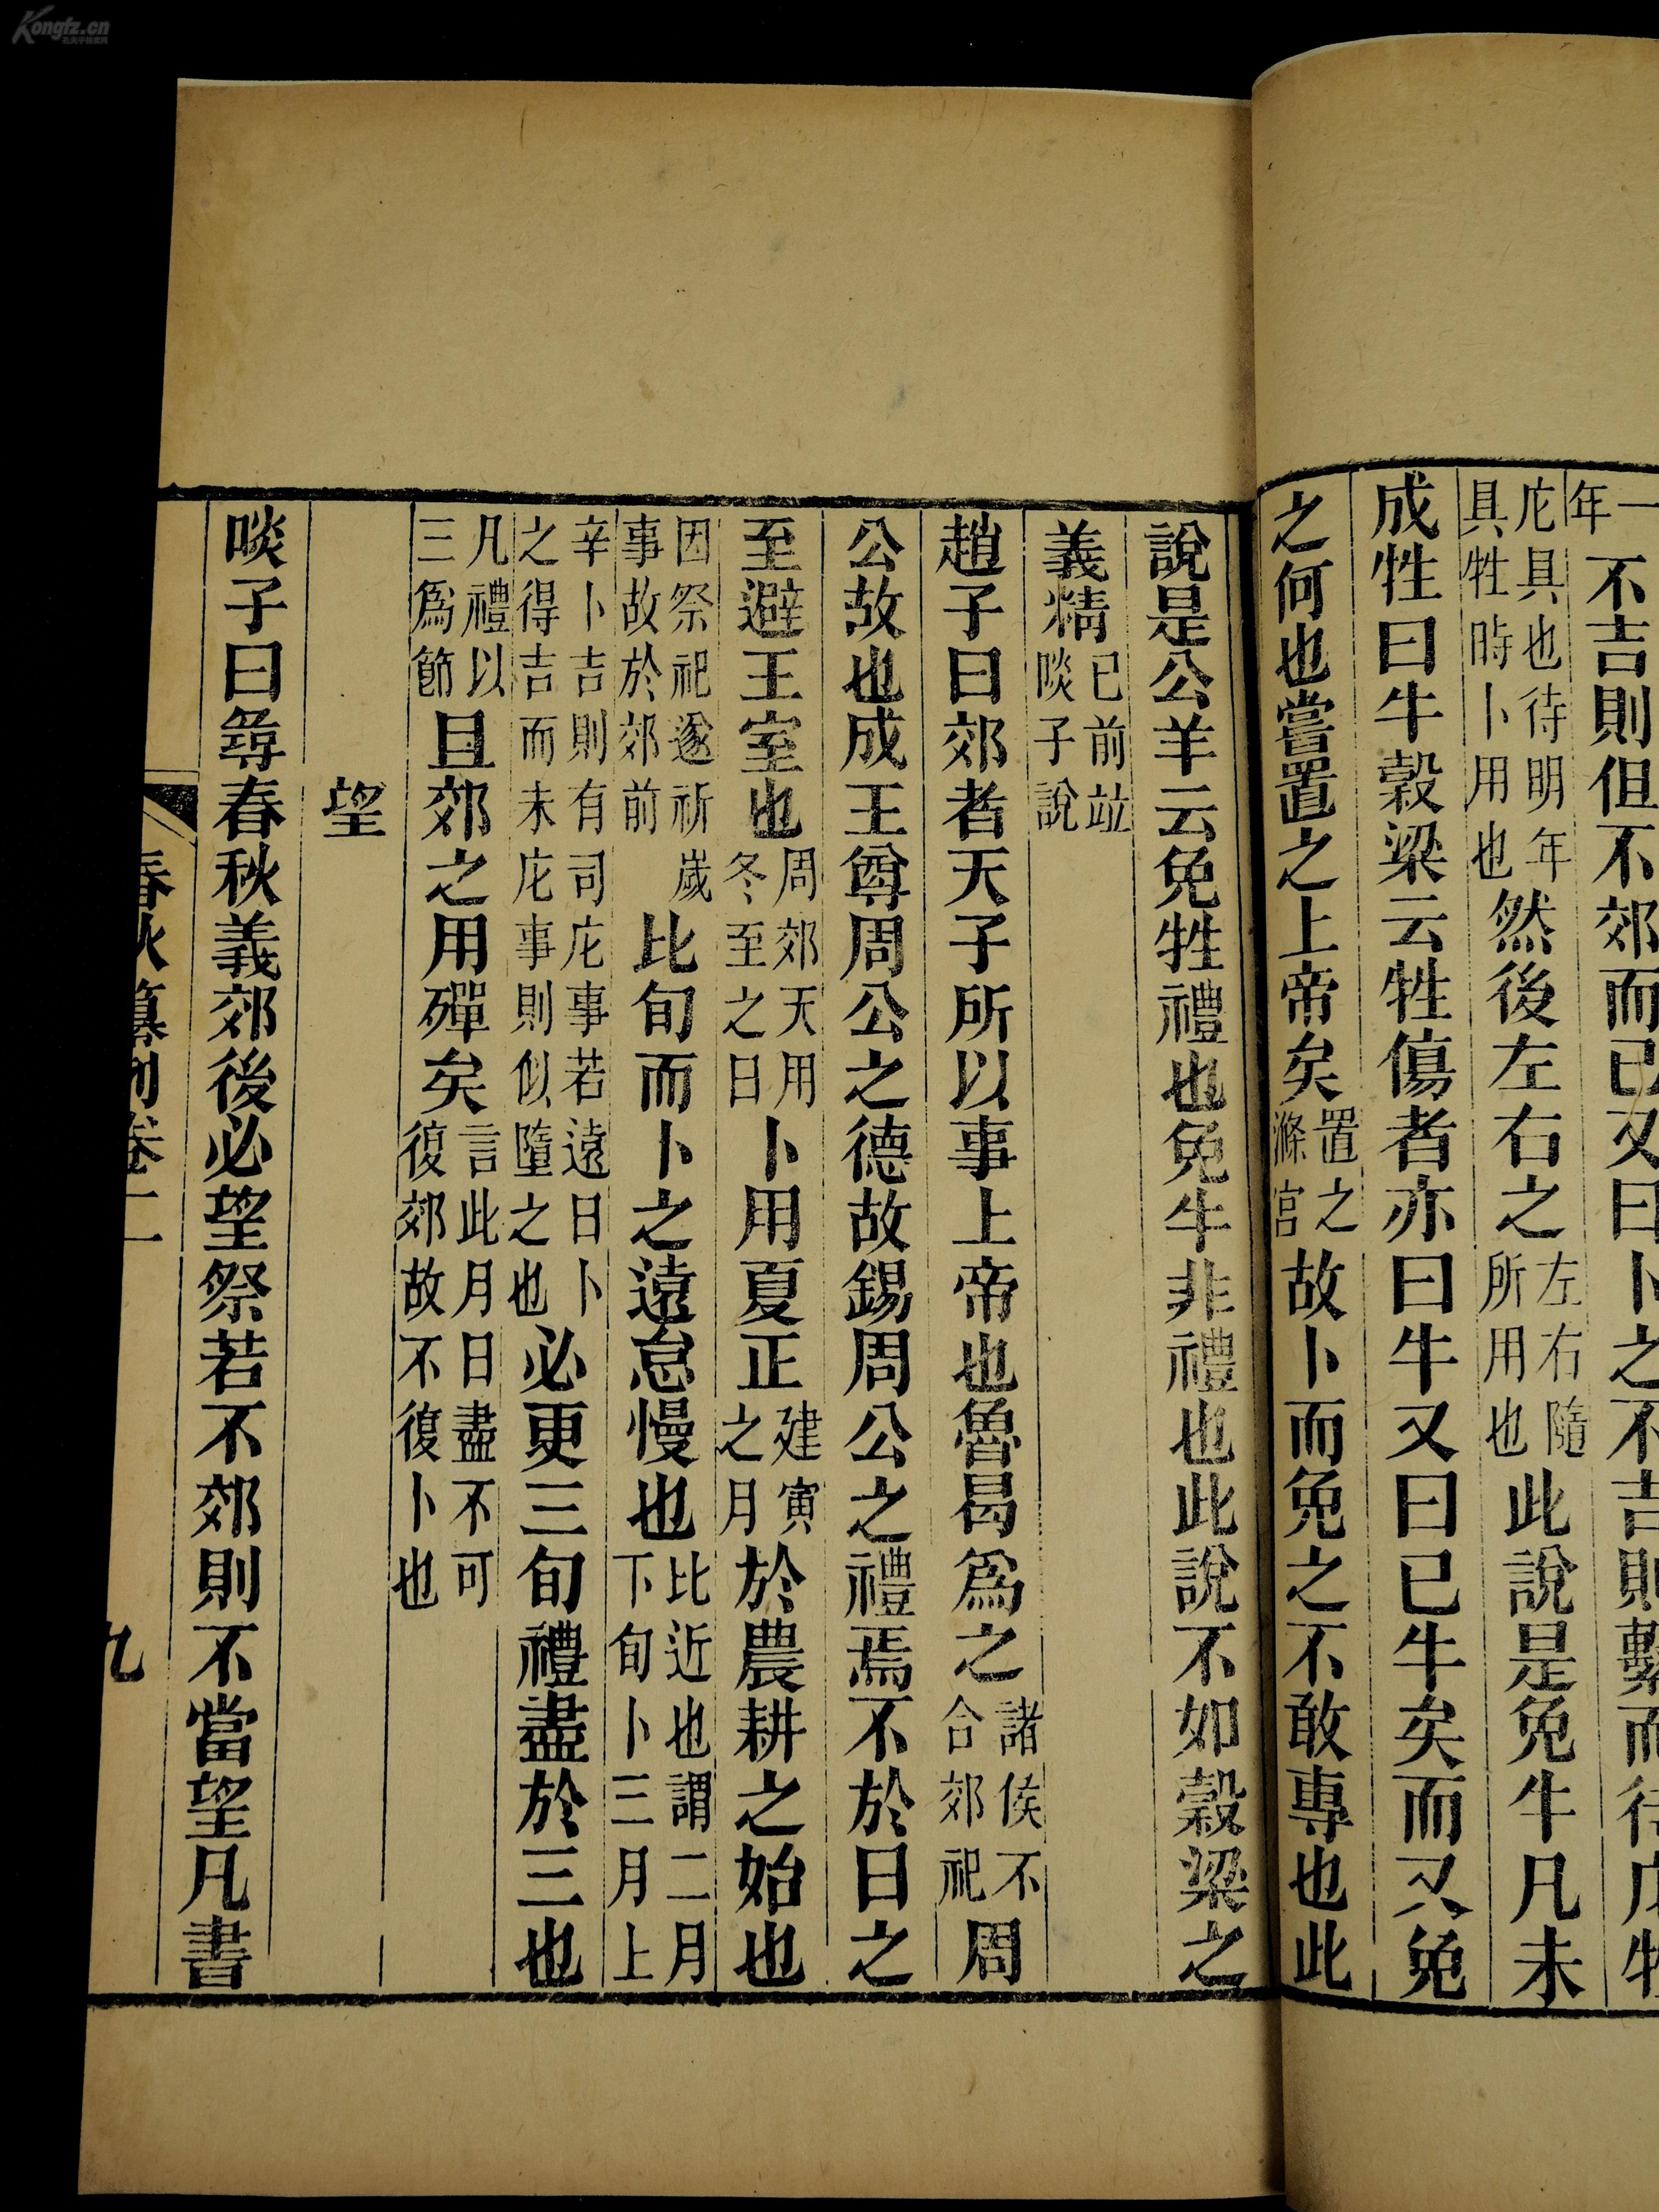 一年不吉則但不郊而已又曰卜之不吉則繫而待
庀具也待明年具牲時卜用也然後左右之左右隨所用也此說是免牛凡未
成牲曰牛穀梁云牲傷者亦曰牛又曰已牛矣而又免
之何也嘗置之上帝矣置之滌宮故卜而免之不敢專也此
說是公羊云免牲禮也免牛非禮也此說不如穀梁之
義精已前竝啖子說
趙子曰郊者天子所以事上帝也魯曷爲之諸侯不合郊祀周
公故也成王尊周公之德故錫周公之禮焉不於日之
至避王室也周郊天用冬至之日卜用夏正建寅之月於農耕之始也
因祭祀遂祈歲事故於郊前比旬而卜之遠怠慢也比近也謂二月下旬卜三月上
辛卜吉則有司庀事若遠日卜之得吉而未庀事則似墮之也必更三旬禮盡於三也
凡禮以三爲節且郊之用殫矣言此月日盡不可復郊故不復卜也
望
啖子曰尋春秋義郊後必望祭若不郊則不當望凡書
春秋纂例卷二
九
Kongfz.cn